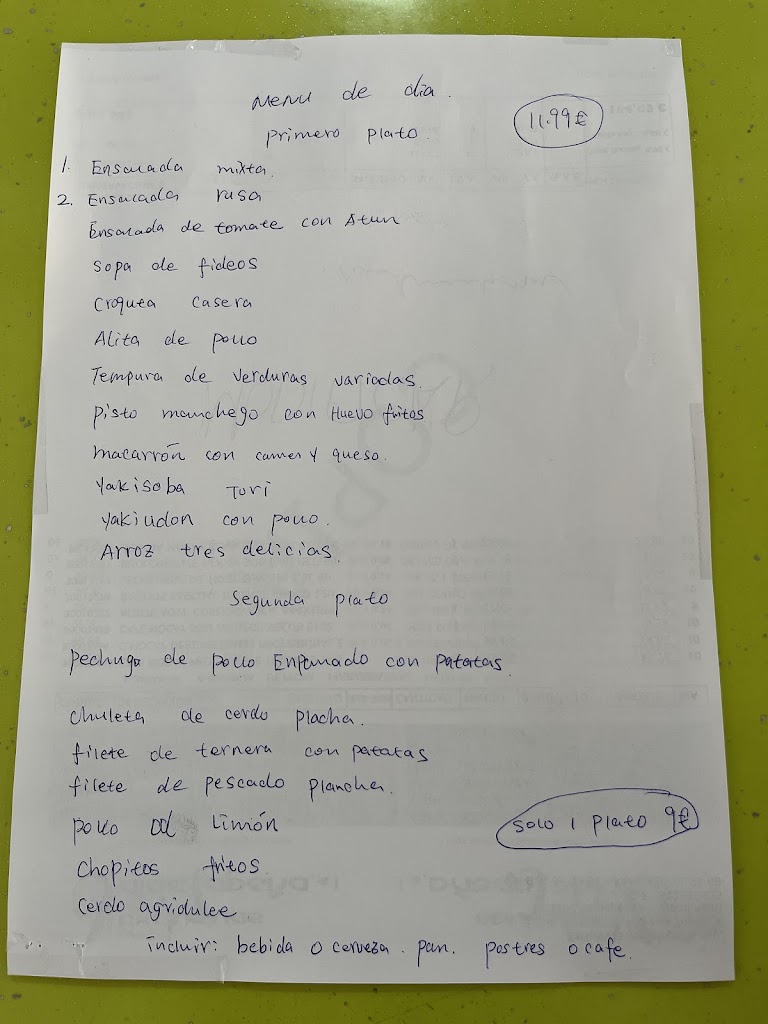 Menu de dia.
11.99€
primero plato.
1. Ensalada mixta.
2. Ensalada rusa
Ensalada de tomate con Atun
Sopa de fideos
Croqueta casera
Alita de pollo
Tempura de verduras variadas.
pisto manchego con Huevo fritos
macarrón con carne y queso.
Yakisoba Tori
Yakiudon con pollo.
Arroz tres delicias.
Segunda plato
pechuga de pollo Enpanado con patatas.
chuleta de cerdo placha.
filete de ternera con patatas
filete de pescado plancha.
pollo al Limón
solo 1 plato 9€
chopitos fritos.
Cerdo agridulce
incluir: bebida o cerveza. pan. postres o cafe.